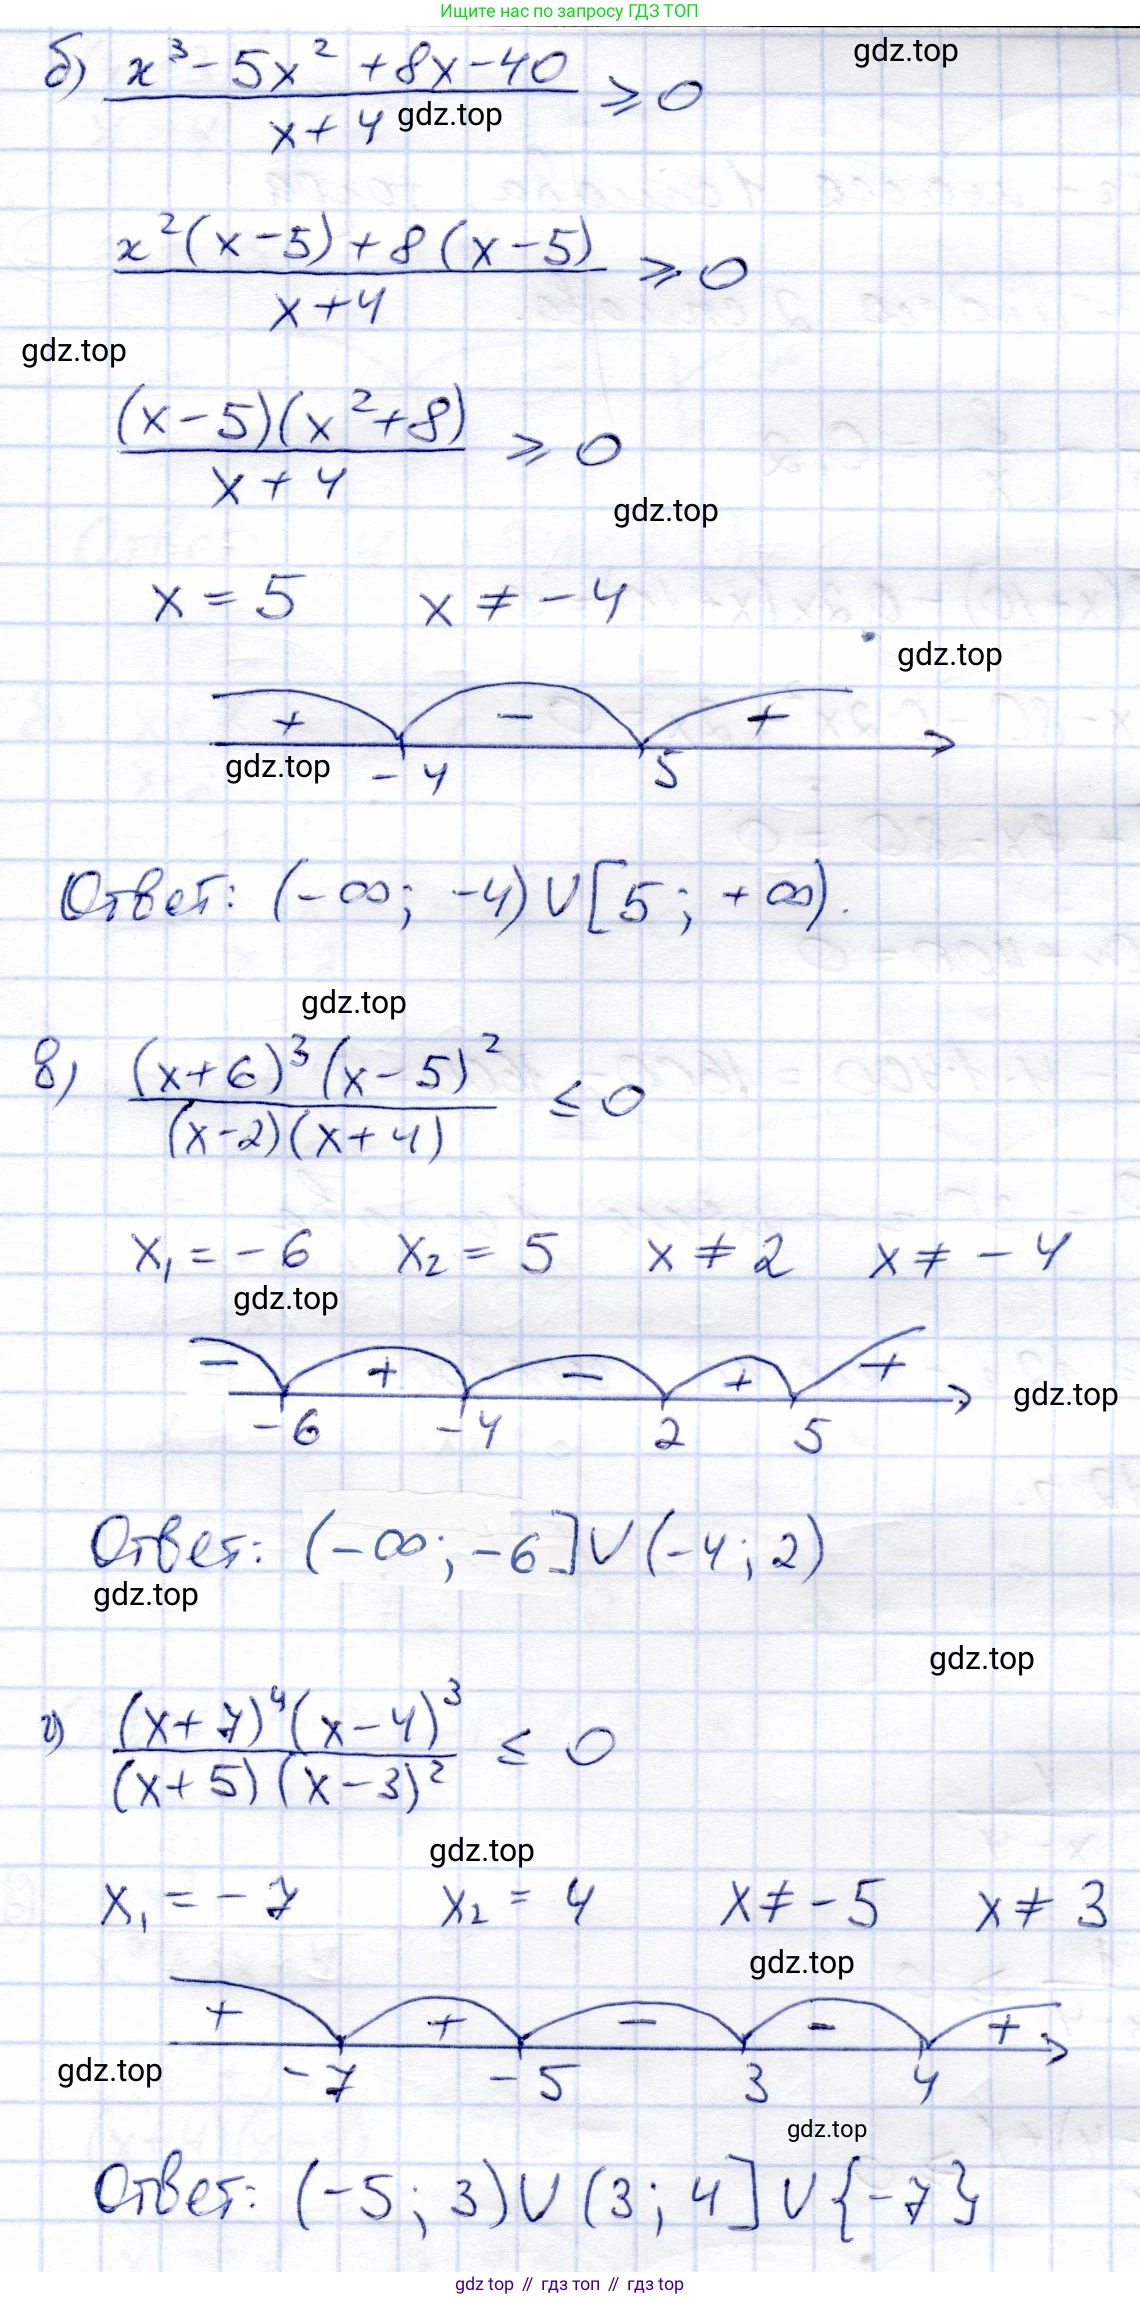 Ищите нас по запросу ГДЗ ТОП
gdz.top
б) (x³ - 5x² + 8x - 40)/(x + 4) ⩾ 0
gdz.top
(x²(x - 5) + 8(x - 5))/(x + 4) ⩾ 0
gdz.top
((x - 5)(x² + 8))/(x + 4) ⩾ 0
gdz.top
x = 5 x ≠ -4
gdz.top
+ - +
gdz.top
-4 5
Ответ: (-∞; -4) ∪ [5; +∞).
gdz.top
в) ((x+6)³(x-5)²)/((x-2)(x+4)) ≤ 0
x₁ = -6 x₂ = 5 x ≠ 2 x ≠ -4
gdz.top
- + - + +
gdz.top
-6 -4 2 5
Ответ: (-∞; -6] ∪ (-4; 2)
gdz.top
gdz.top
г) ((x+7)⁴(x-4)³)/((x+5)(x-3)²) ≤ 0
gdz.top
x₁ = -7 x₂ = 4 x ≠ -5 x ≠ 3
gdz.top
+ + - - +
gdz.top
-7 -5 3 4
gdz.top
Ответ: (-5; 3) ∪ (3; 4] ∪ {-7}
gdz top // гдз топ // гдз top